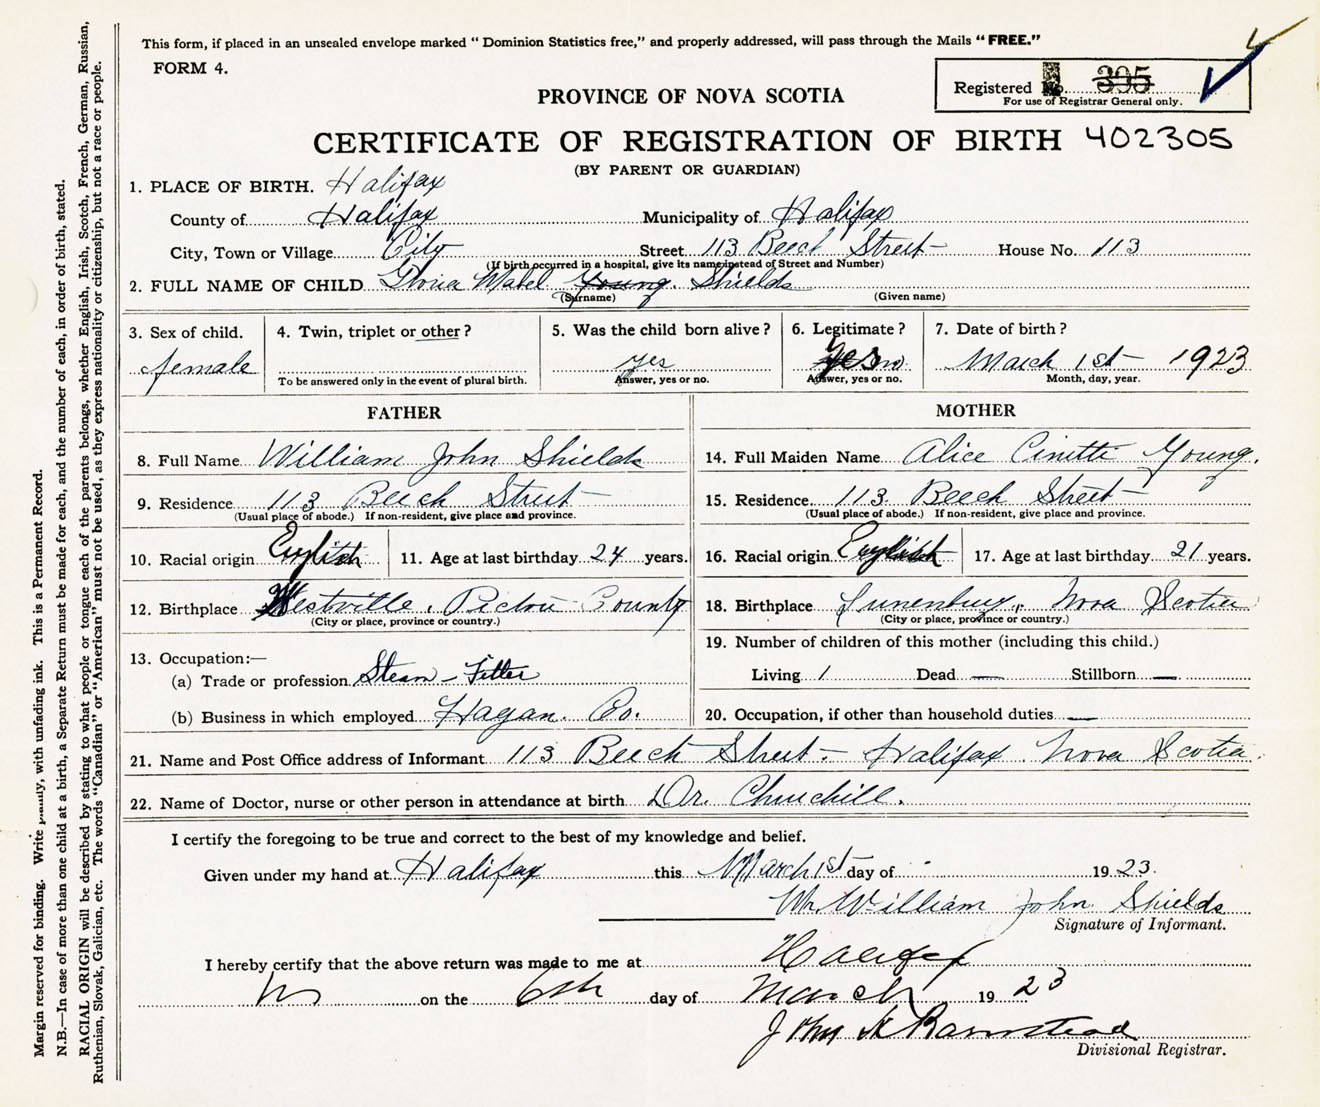 This form, if placed in an unsealed envelope marked " Dominion Statistics free," and properly addressed, will pass through the Mails "FREE."
FORM 4.
Registered No. 395
For use of Registrar General only.
PROVINCE OF NOVA SCOTIA
CERTIFICATE OF REGISTRATION OF BIRTH 402305
(BY PARENT OR GUARDIAN)
1. PLACE OF BIRTH. Halifax
County of Halifax Municipality of Halifax
City, Town or Village City Street 113 Beech Street House No. 113
(If birth occurred in a hospital, give its name instead of Street and Number)
2. FULL NAME OF CHILD Gloria Mabel Young. Shields
(Surname) (Given name)
3. Sex of child. 4. Twin, triplet or other? 5. Was the child born alive? 6. Legitimate? 7. Date of birth?
female yes Yes no March 1st 1923
To be answered only in the event of plural birth. Answer, yes or no. Answer, yes or no. Month, day, year.
FATHER MOTHER
8. Full Name William John Shields 14. Full Maiden Name Alice Young.
9. Residence 113 Beech Street 15. Residence 113 Beech Street
(Usual place of abode.) If non-resident, give place and province. (Usual place of abode.) If non-resident, give place and province.
10. Racial origin English 11. Age at last birthday 24 years. 16. Racial origin English 17. Age at last birthday 21 years.
12. Birthplace Westville, Pictou County 18. Birthplace Lunenburg, Nova Scotia
(City or place, province or country.) (City or place, province or country.)
13. Occupation:— 19. Number of children of this mother (including this child.)
(a) Trade or profession Steam-Fitter Living 1 Dead — Stillborn —
(b) Business in which employed Hagan. Co. 20. Occupation, if other than household duties —
21. Name and Post Office address of Informant 113 Beech Street - Halifax Nova Scotia
22. Name of Doctor, nurse or other person in attendance at birth Dr. Churchill.
I certify the foregoing to be true and correct to the best of my knowledge and belief.
Given under my hand at Halifax this March 1st day of 1923.
William John Shields
Signature of Informant.
I hereby certify that the above return was made to me at Halifax
NS on the 6th day of March 1923
John A Barnstead
Divisional Registrar.
Margin reserved for binding. Write plainly, with unfading ink. This is a Permanent Record.
N.B.—In case of more than one child at a birth, a Separate Return must be made for each, and the number of each, in order of birth, stated.
RACIAL ORIGIN will be described by stating to what people or tongue each of the parents belongs, whether English, Irish, Scotch, French, German, Russian,
Ruthenian, Slovak, Galician, etc. The words "Canadian" or "American" must not be used, as they express nationality or citizenship, but not a race or people.